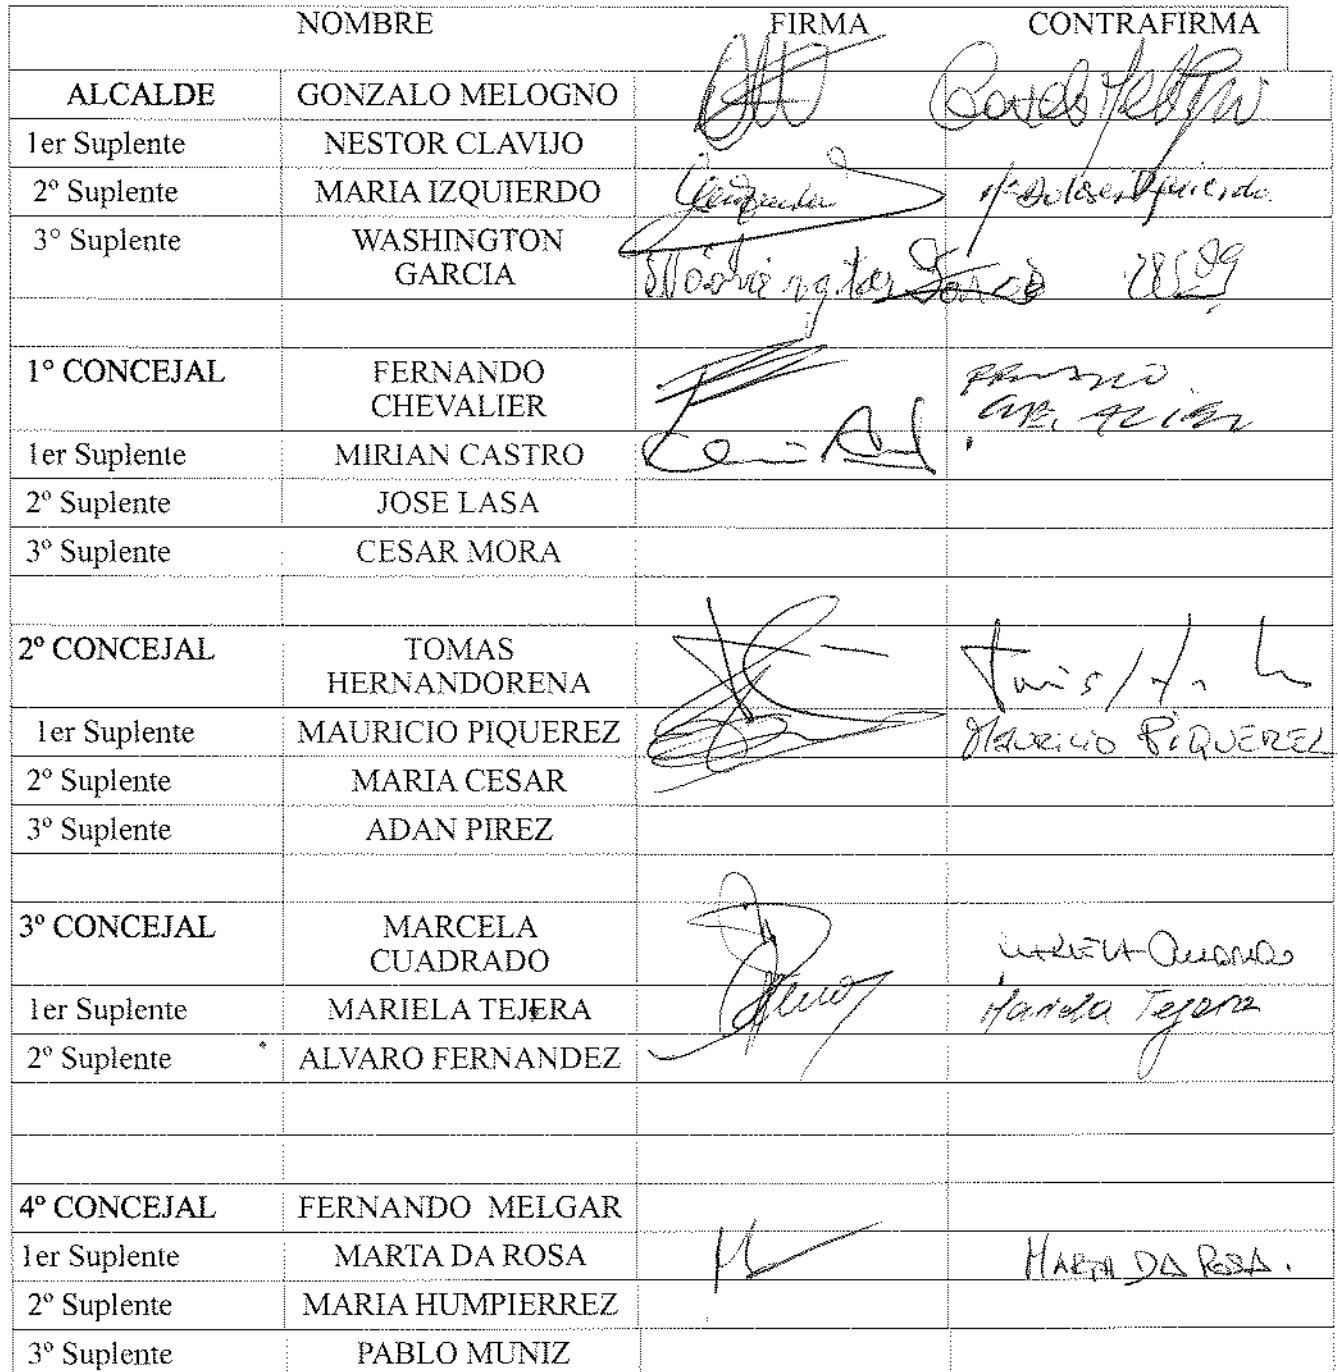 NOMBRE FIRMA CONTRAFIRMA
ALCALDE GONZALO MELOGNO
1er Suplente NESTOR CLAVIJO
2º Suplente MARIA IZQUIERDO
3° Suplente WASHINGTON
GARCIA
1º CONCEJAL FERNANDO
CHEVALIER
1er Suplente MIRIAN CASTRO
2º Suplente JOSE LASA
3º Suplente CESAR MORA
2º CONCEJAL TOMAS
HERNANDORENA
1er Suplente MAURICIO PIQUEREZ MAURICIO PIQUEREZ
2º Suplente MARIA CESAR
3º Suplente ADAN PIREZ
3º CONCEJAL MARCELA
CUADRADO
1er Suplente MARIELA TEJERA Mariela Tejera
2º Suplente ALVARO FERNANDEZ
4º CONCEJAL FERNANDO MELGAR
1er Suplente MARTA DA ROSA MARTA DA ROSA.
2º Suplente MARIA HUMPIERREZ
3º Suplente PABLO MUNIZ